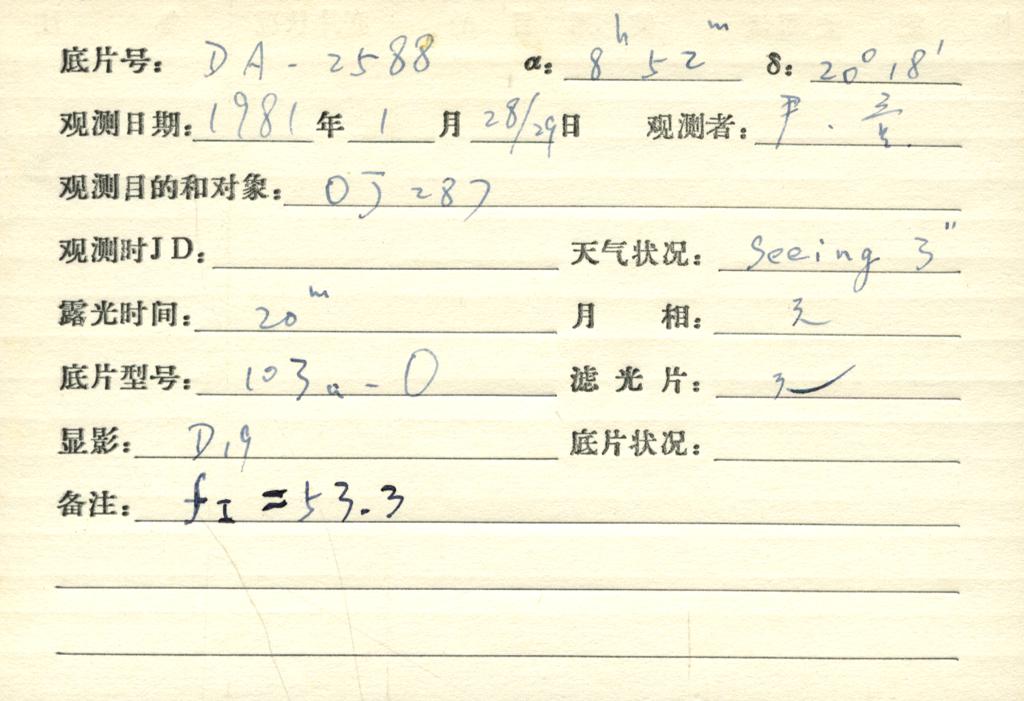 底片号: DA-2588 α: 8h 52m δ: 20° 18'
观测日期: 1981 年 1 月 28/29 日 观测者: 尹.
观测目的和对象: OJ 287
观测时JD: 天气状况: Seeing 3"
露光时间: 20m 月 相: 无
底片型号: 103a-O 滤光片:
显影: D19 底片状况:
备注: fI = 53.3